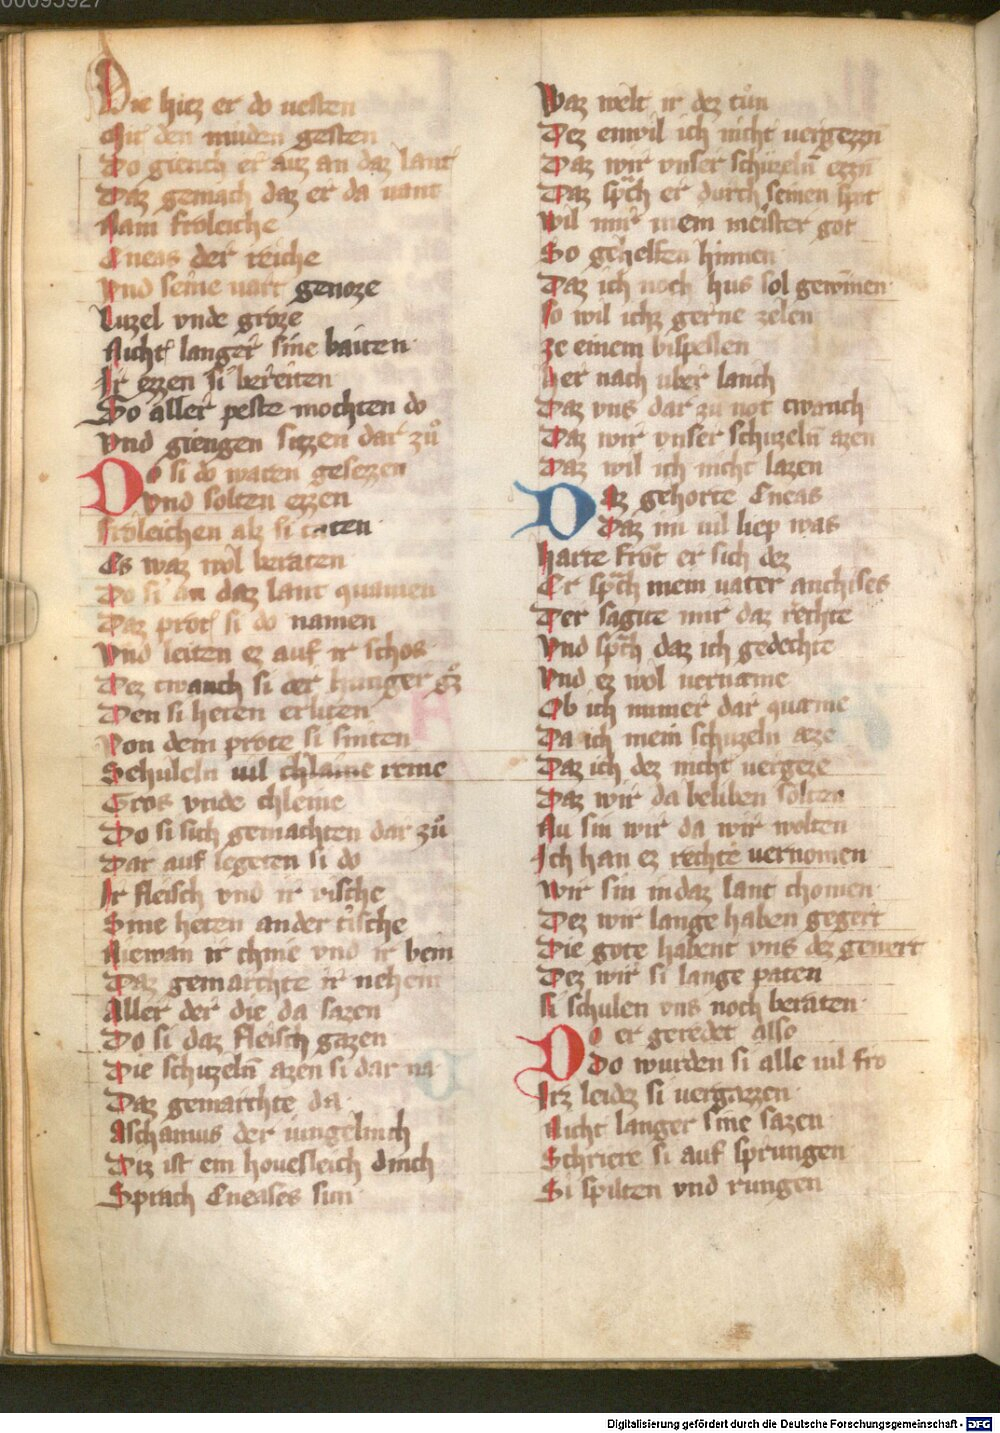 00095927
Die hiez er do uesten
Mit den muden gesten
Do giench er auz an daz lant
Daz gemach daz er da uant
Nam froleiche
Eneas der reiche
Vnd seine uart genoze
Luzel vnde groze
Nicht langer sine baiten
Ir ezzen si bereiten
So aller peste mochten do
Vnd giengen sitzen dar zů
Do si do waren gesezzen
Vnd solten ezzen
froleichen alz si taten
Es waz wol beraten
Do si an daz lant quamen
Daz prot si do namen
Vnd leiten ez auf ir schos
Dez twanch si der hunger
Den si heten erliten
Von dem prote si sniten
Schuleln uil chlaine reine
Gros vnde chleine
Do si sich gemachten dar zů
Dar auf legeten si do
Ir fleisch vnd ir vische
Sine heten ander tische
Niewan ir chnie vnd ir bein
Daz gemarchte ir nchein
Aller der die da sazen
Do si daz fleisch gazen
Die schuzeln̄ azen si dar na
Daz gemarchte da
Aschanius der iungelinch
Diz ist ein houesleich dinch
Sprach Eneases sun
Waz welt ir dez tůn
Dez enwil ich nicht uergezzn̄
Daz wir vnser schuzeln̄ ezzn̄
Daz sp̄ch er durch seinen spot
Wil mir mein meister got
So gehelfen hinnen
Daz ich noch hus sol gewinnen
So wil ichz gerne zelen
ze einem bispellen
Her nach uber lanch
Daz vns dar zu not twanch
Daz wir vnser schuzeln̄ azen
Daz wil ich nicht lazen
Daz gehorte Eneas
Daz im uil liep was
harte frot er sich dez
Er sp̄ch mein uater anchises
Der sagite mir daz rechte
Vnd sp̄ch daz ich gedechte
Vnd ez wol uername
Ob ich nimer dar quame
Da ich mein schuzeln aze
Daz ich dez nicht uergeze
Daz wir da beliben solten
Nu sin wir da wir wolten
Ich han ez rechte uernomen
Wir sin in daz lant chomen
Dez wir lange haben gegert
Die gote habent vns dez gewert
Dez wir si lange paten
Si schulen vns noch beraten
Do er geredet also
Do wurden si alle uil fro
Irz leidez si uergazzen
Nicht langer sine sazen
Schriere si auf sprungen
Si spilten vnd rungen
Digitalisierung gefördert durch die Deutsche Forschungsgemeinschaft - DFG